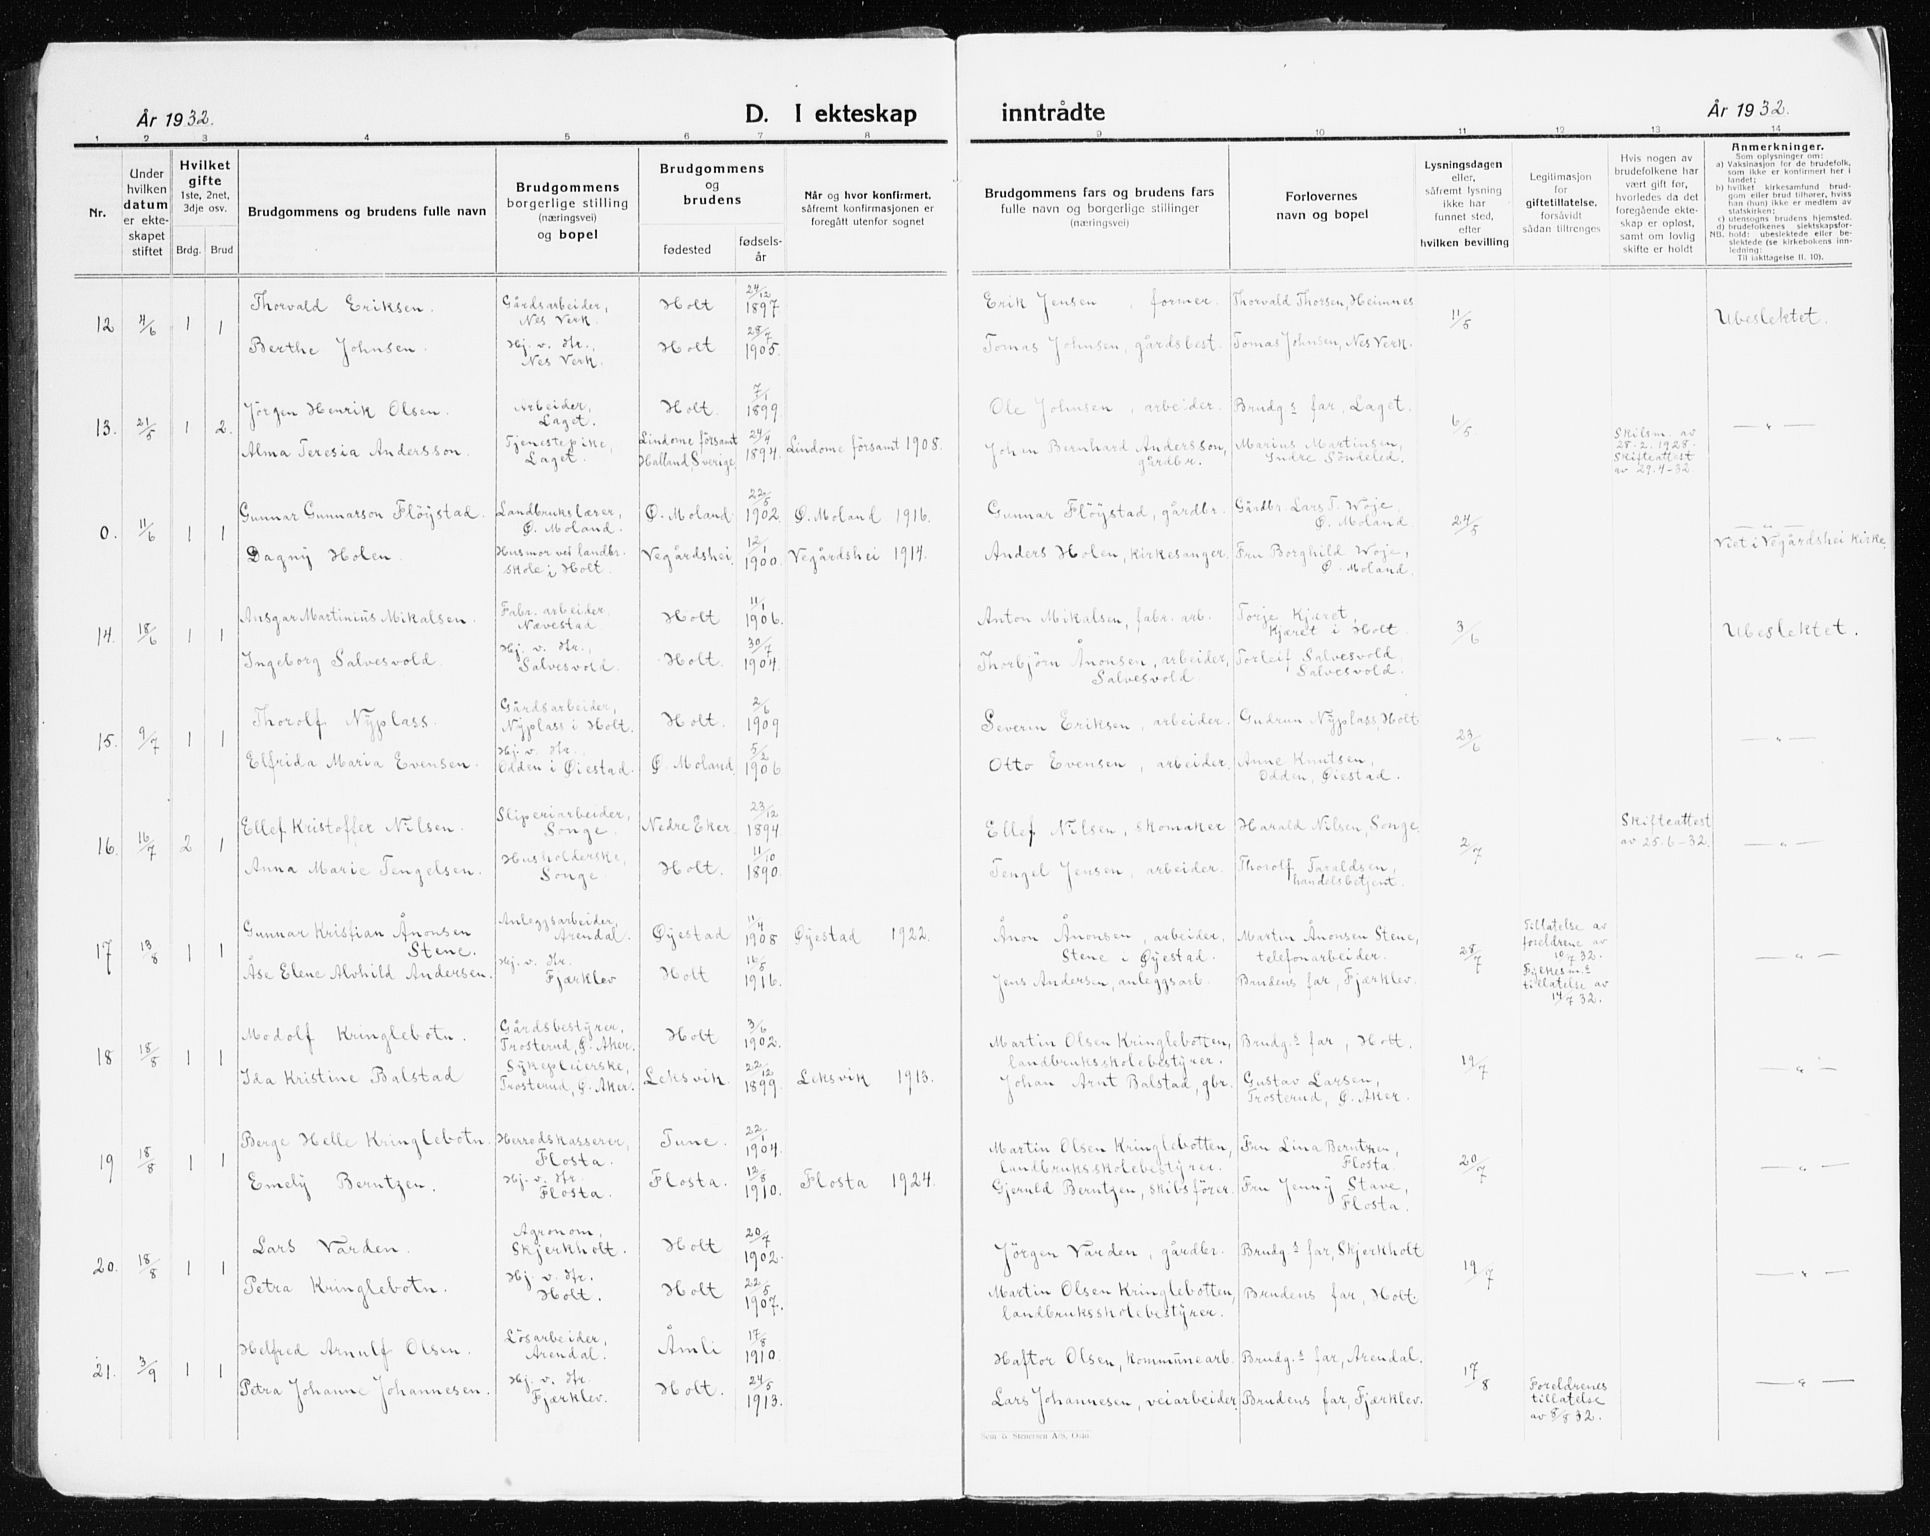 År 1932.
D. I ekteskap
inntrådte
År 1932.
1 2 3 4 5 6 7 8 9 10 11 12 13 14
Nr.
Under
hvilken
datum
er ekte-
skapet
stiftet
Hvilket
gifte
1ste, 2net,
3dje osv.
Brdg. Brud
Brudgommens og brudens fulle navn
Brudgommens
borgerlige stilling
(næringsvei)
og bopel
Brudgommens
og
brudens
fødested
fødsels-
år
Når og hvor konfirmert,
såfremt konfirmasjonen er
foregått utenfor sognet
Brudgommens fars og brudens fars
fulle navn og borgerlige stillinger
(næringsvei)
Forlovernes
navn og bopel
Lysningsdagen
eller,
såfremt lysning
ikke har
funnet sted,
efter
hvilken bevilling
Legitimasjon
for
giftetillatelse,
forsåvidt
sådan tiltrenges
Hvis nogen av
brudefolkene har
vært gift før,
hvorledes da det
foregående ekte-
skap er opløst,
samt om lovlig
skifte er holdt
Anmerkninger.
Som oplysninger om:
a) Vaksinasjon for de brudefolk,
som ikke er konfirmert her i
landet;
b) hvilket kirkesamfund brud-
gom eller brud tilhører, hviss
han (hun) ikke er medlem av
statskirken;
c) utensogns brudens hjemsted.
d) brudefolkenes slektskapsfor-
NB. hold: ubeslektede eller be-
slektede (se kirkebokens inn-
ledning:
Til iakttagelse II. 10).
12 4/6 1 1
Thorvald Eriksen.
Gårdsarbeider,
Nes Verk.
Holt
24/12
1897
Erik Jensen, former.
Thorvald Thorsen, Heimnes
11/5
Ubeslektet.
Berthe Johnsen.
Hj. v. Hr.,
Nes Verk.
Holt
28/7
1905.
Tomas Johnsen, gårdsbest.
Tomas Johnsen, Nes Verk.
13. 21/5 1 2.
Jörgen Henrik Olsen.
Arbeider,
Laget.
Holt.
7/1
1899
Ole Johnsen, arbeider.
Brudg.s far, Laget.
6/5
— " —
Alma Teresia Andersson.
Tjenestepike,
Laget.
Lindome församt
Halland Sverige
24/4
1894.
Lindome församt 1908.
Johan Bernhard Andersson,
gårdbr.
Marius Martinsen,
Indre Söndeled.
Skilsm. av
28-2.1928.
Skifteattest
av 29.4-32.
0. 11/6 1 1
Gunnar Gunnarson Flöystad.
Landbrukslærer,
Ø. Moland.
Ø. Moland
22/5
1902.
Ø. Moland 1916.
Gunnar Flöystad, gårdbr.
Gårdbr. Lars T. Woje
Ø. Moland
24/5
— " —
Viet i Vegårdshei kirke.
Dagny Holen.
Husmor vei landbr.
skole i Holt.
Vegårdshei
12/1
1900.
Vegårdshei 1914.
Anders Holen, kirkesanger.
Fru Borghild Woje,
Ø. Moland.
14. 18/6 1 1
Ansgar Martinius Mikalsen.
Fabr. arbeider,
Nævestad.
Holt
11/1
1906.
Anton Mikalsen, fabr. arb.
Torje Kjæret,
Kjæret i Holt.
3/6
Ubeslektet.
Ingeborg Salvesvold.
Hj. v. Hr.,
Salvesvold.
Holt.
30/7
1904.
Thorbjörn Ånonsen, arbeider,
Salvesvold.
Torleif Salvesvold,
Salvesvold.
15. 9/7 1 1
Thorolf Nyplass.
Gårdsarbeider,
Nyplass i Holt.
Holt.
2/6
1909
Severin Eriksen, arbeider.
Gudrun Nyplass, Holt
23/6
— " —
Elfrida Maria Evensen.
Hj. v. Hr.,
Odden i Øiestad.
Ø. Moland.
5/2
1906
Otto Evensen, arbeider.
Anne Knutsen,
Odden, Øiestad.
16. 16/7 2 1
Ellef Kristoffer Nilsen.
Sliperiarbeider,
Songe.
Nedre Eker.
23/12
1894.
Ellef Nilsen, skomaker
Harald Nilsen, Songe.
2/7
Skifteattest
av 25.6-32.
— " —
Anna Marie Tengelsen.
Husholderske,
Songe.
Holt.
11/10
1890.
Tengel Jensen, arbeider.
Thorolf Taraldsen,
handelsbetjent.
17 13/8 1 1
Gunnar Kristian Ånonsen
Stene.
Anleggsarbeider,
Arendal.
Øyestad
11/4
1908
Øyestad 1922.
Ånon Ånonsen, arbeider,
Stene i Øyestad.
Martin Ånonsen Stene,
telefonarbeider.
28/7
Tillatelse av
foreldrene av
10/7 32.
Fylkesm.s
tillatelse av
14/7 32.
— " —
Åse Elene Alvhild Andersen.
Hj. v. Hr.
Fjærklev
Holt
16/5
1916.
Jens Andersen, anleggsarb.
Brudens far, Fjærklev.
18 18/8 1 1
Modolf Kringlebotn.
Gårdsbestyrer,
Trosterud, Ø. Aker.
Holt
3/6
1902.
Martin Olsen Kringlebotten,
landbruksskolebestyrer.
Brudg.s far, Holt.
19/7
— " —
Ida Kristine Balstad
Sykepleierske,
Trosterud, Ø. Aker.
Leksvik.
22/12
1899.
Leksvik 1913.
Johan Arnt Balstad, gbr.
Gustav Larsen,
Trosterud, Ø. Aker.
19 18/8 1 1
Berge Helle Kringlebotn.
Herredskasserer,
Flosta.
Tune.
22/1
1904.
Martin Olsen Kringlebotten,
landbruksskolebestyrer.
Fru Lina Berntzen,
Flosta.
20/7
— " —
Emely Berntzen.
Hj. v. Hr.
Flosta.
Flosta.
12/8
1910.
Flosta 1924.
Gjeruld Berntzen, skibsfører.
Fru Jenny Stave,
Flosta.
20. 18/8 1 1
Lars Varden.
Agronom,
Skjerkholt.
Holt
20/7
1902.
Jörgen Varden, gårdbr.
Brudg.s far, Skjerkholt
19/7
— " —
Petra Kringlebotn.
Hj. v. Hr.
Holt.
Holt
22/5
1907.
Martin Olsen Kringlebotten,
landbruksskolebestyrer.
Brudens far, Holt.
21. 3/9 1 1
Helfred Arnulf Olsen.
Lösarbeider,
Arendal.
Åmli
17/8
1910.
Haftor Olsen, kommunearb.
Brudg.s far, Arendal.
17/8
Foreldrenes
tillatelse
av 8/8 32.
— " —
Petra Johanne Johannesen.
Hj. v. Hr.
Fjærklev.
Holt.
24/5
1913.
Lars Johannesen, veiarbeider.
Brudens far, Fjærklev.
Sem & Stenersen A/S, Oslo.